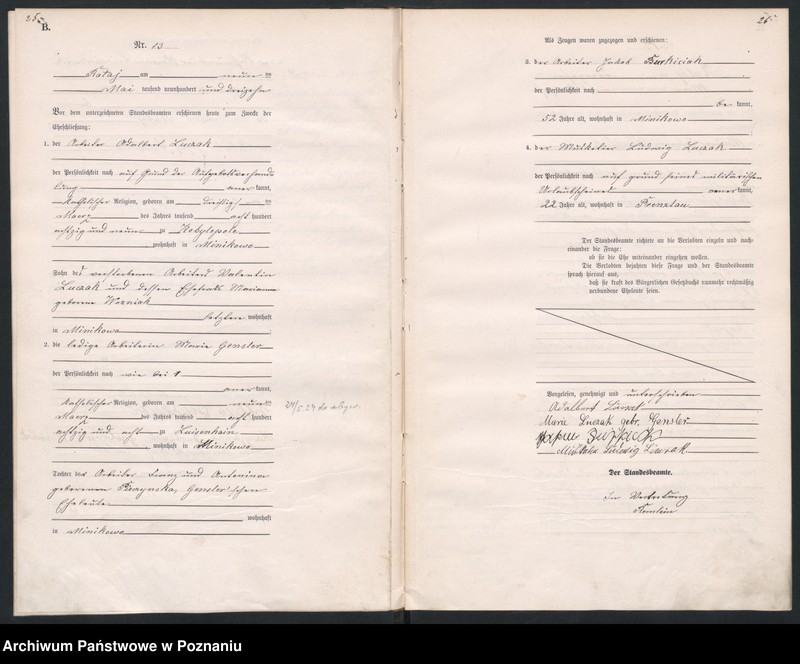 25.
B.
Nr. 13
Rataj am neun ten
Mai tausend neunhundert und dreizehn
Vor dem unterzeichneten Standesbeamten erschienen heute zum Zwecke der
Eheschließung:
1. der Arbeiter Adalbert Luczak
der Persönlichkeit nach auf Grund der Aufgebotsverhand
lung aner kannt,
katholischer Religion, geboren am dreißigsten
Maerz des Jahres tausend acht hundert
achtzig und neun zu Kobylepole
, wohnhaft in Minikowo
Sohn des verstorbenen Arbeiters Valentin
Luczak und dessen Ehefrau Marianna
geborene Wozniak
letztere wohnhaft
in Minikowo
2. die ledige Arbeiterin Marie Gensler
der Persönlichkeit nach wie bei 1
aner kannt,
katholischer Religion, geboren am neun ten
Maerz des Jahres tausend acht hundert
achtzig und acht zu Luisenhain
, wohnhaft in Minikowo
Tochter des Arbeiter Franz und Antonina
geborenen Gensler'schen
Eheleute
wohnhaft
in Minikowo
26.
Als Zeugen waren zugezogen und erschienen:
3. der Arbeiter Jakob Burkiciak
der Persönlichkeit nach
be kannt,
52 Jahre alt, wohnhaft in Minikowo
4. der Musketier Ludwig Luczak
der Persönlichkeit nach auf grund seines militärischen
Urlaubscheines aner kannt,
22 Jahre alt, wohnhaft in Prenzlau
Der Standesbeamte richtete an die Verlobten einzeln und nach-
einander die Frage:
ob sie die Ehe miteinander eingehen wollen.
Die Verlobten bejahten diese Frage und der Standesbeamte
sprach hierauf aus,
daß sie kraft des Bürgerlichen Gesetzbuchs nunmehr rechtmäßig
verbundene Eheleute seien.
Vorgelesen, genehmigt und unterschrieben
Adalbert
Marie Luczak geb. Gensler
Ludwig Luczak
Der Standesbeamte.
In Vertretung